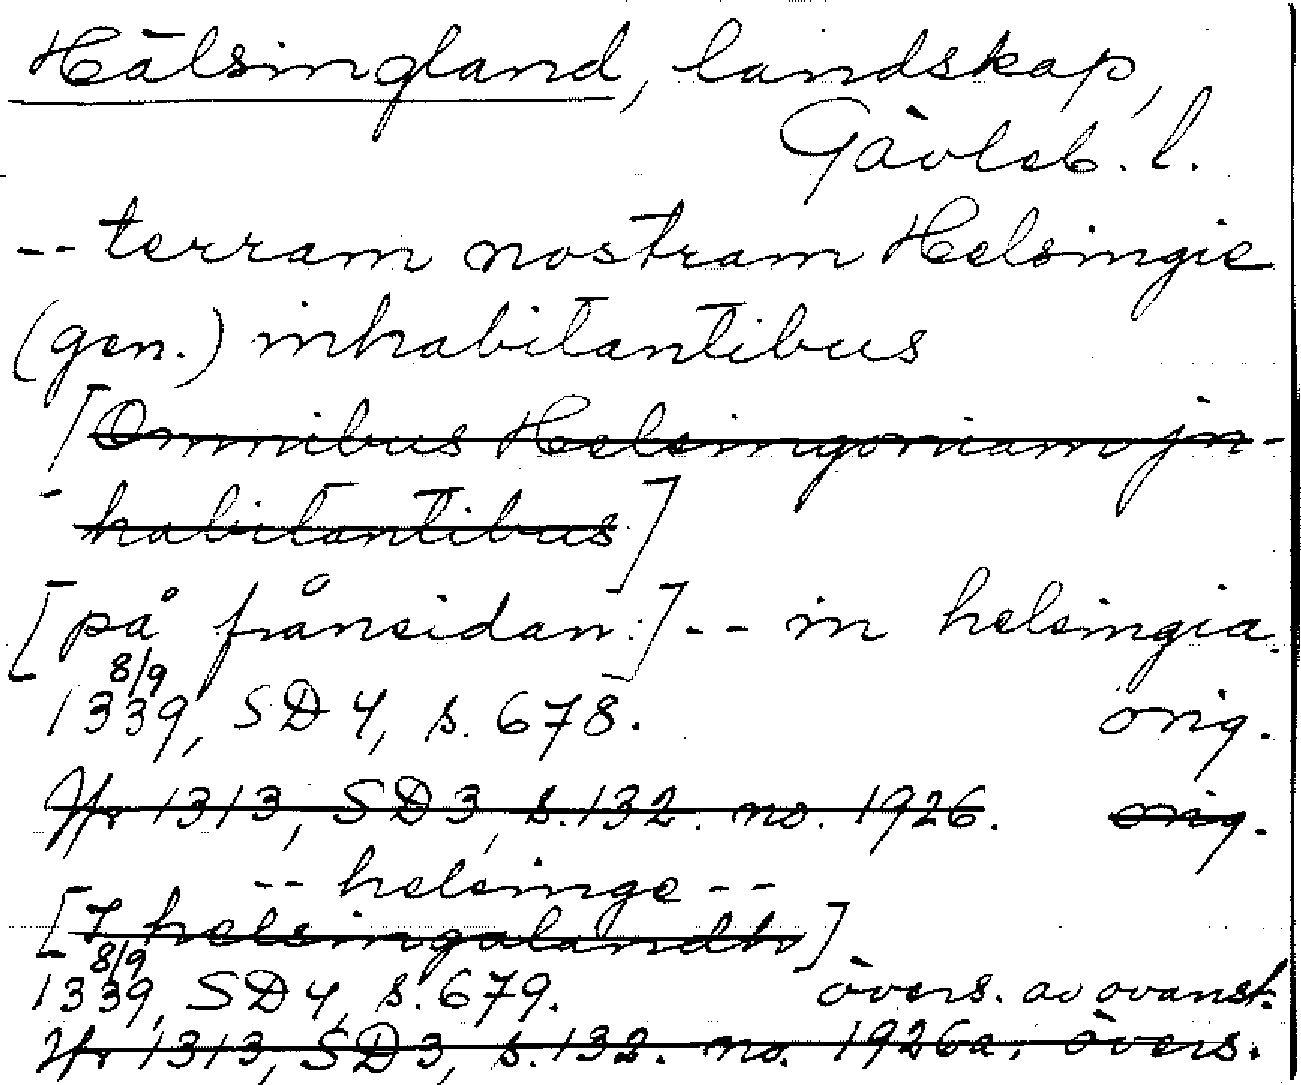 Hälsingland, landskap,
Gävleb. l.
-- terram nostram Helsingie
(gen.) inhabitantibus
[Omnibus Helsingoniam jn-
habitantibus]
[på frånsidan:] -- in helsingia.
8/9
1339, SD 4, s. 678. orig.
Jfr 1313, SD 3, s. 132. no. 1926. orig.
-- helsinge --
[I helsingalandh]
8/9
1339, SD 4, s. 679. övers. av ovanst.
Jfr 1313, SD 3, s. 132. no. 1926a. övers.